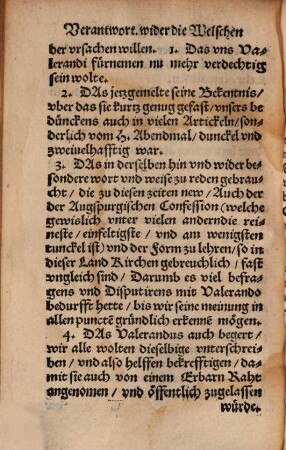 Verantwort. wider die Welschen
der vrsachen willen. 1. Das vns Va-
lerandi fürnemen nu mehr verdechtig
sein wolte.
2. DAs jetzgemelte seine Bekentnis/
vber das sie kurtz genug gefast/ vnsers be
dünckens auch in vielen Artickeln/ son-
derlich vom H. Abendmal/ dunckel vnd
zweiuelhafftig war.
3. DAs in derselben hin vnd wider be-
sondere wort vnd weise zu reden gebrau-
cht/ die zu diesen zeiten new/ Auch der
der Augspurgischen Confession (welche
gewislich vnter vielen anderndie rei-
neste/ einfeltigste/ vnd am wenigsten
tunckel ist) vnd der Form zu lehren/ so in
dieser Land Kirchen gebreuchlich/ fast
vngleich sind/ Darumb es viel befra-
gens vnd Disputirens mit Valerando
bedurfft hette/ bis wir seine meinung in
allen punctē gründlich erkennē mögen.
4. DAs Valerandus auch begert/
wir alle wolten dieselbige vnterschrei-
ben/ vnd also helffen bekrefftigen/ da-
mit sie auch von einem Erbarn Raht
angenomen/ vnd öffentlich zugelassen
würde.